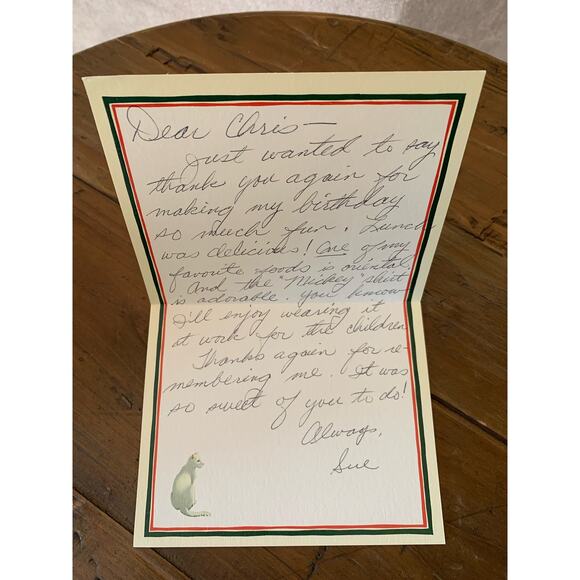 Dear Chris—
Just wanted to say
thank you again for
making my birthday
so much fun. Lunch
was delicious! One of my
favorite foods is oriental.
And the "Mickey" shirt
is adorable. You know
I'll enjoy wearing it
at work for the children
Thanks again for re-
membering me. It was
so sweet of you to do!
Always,
Sue